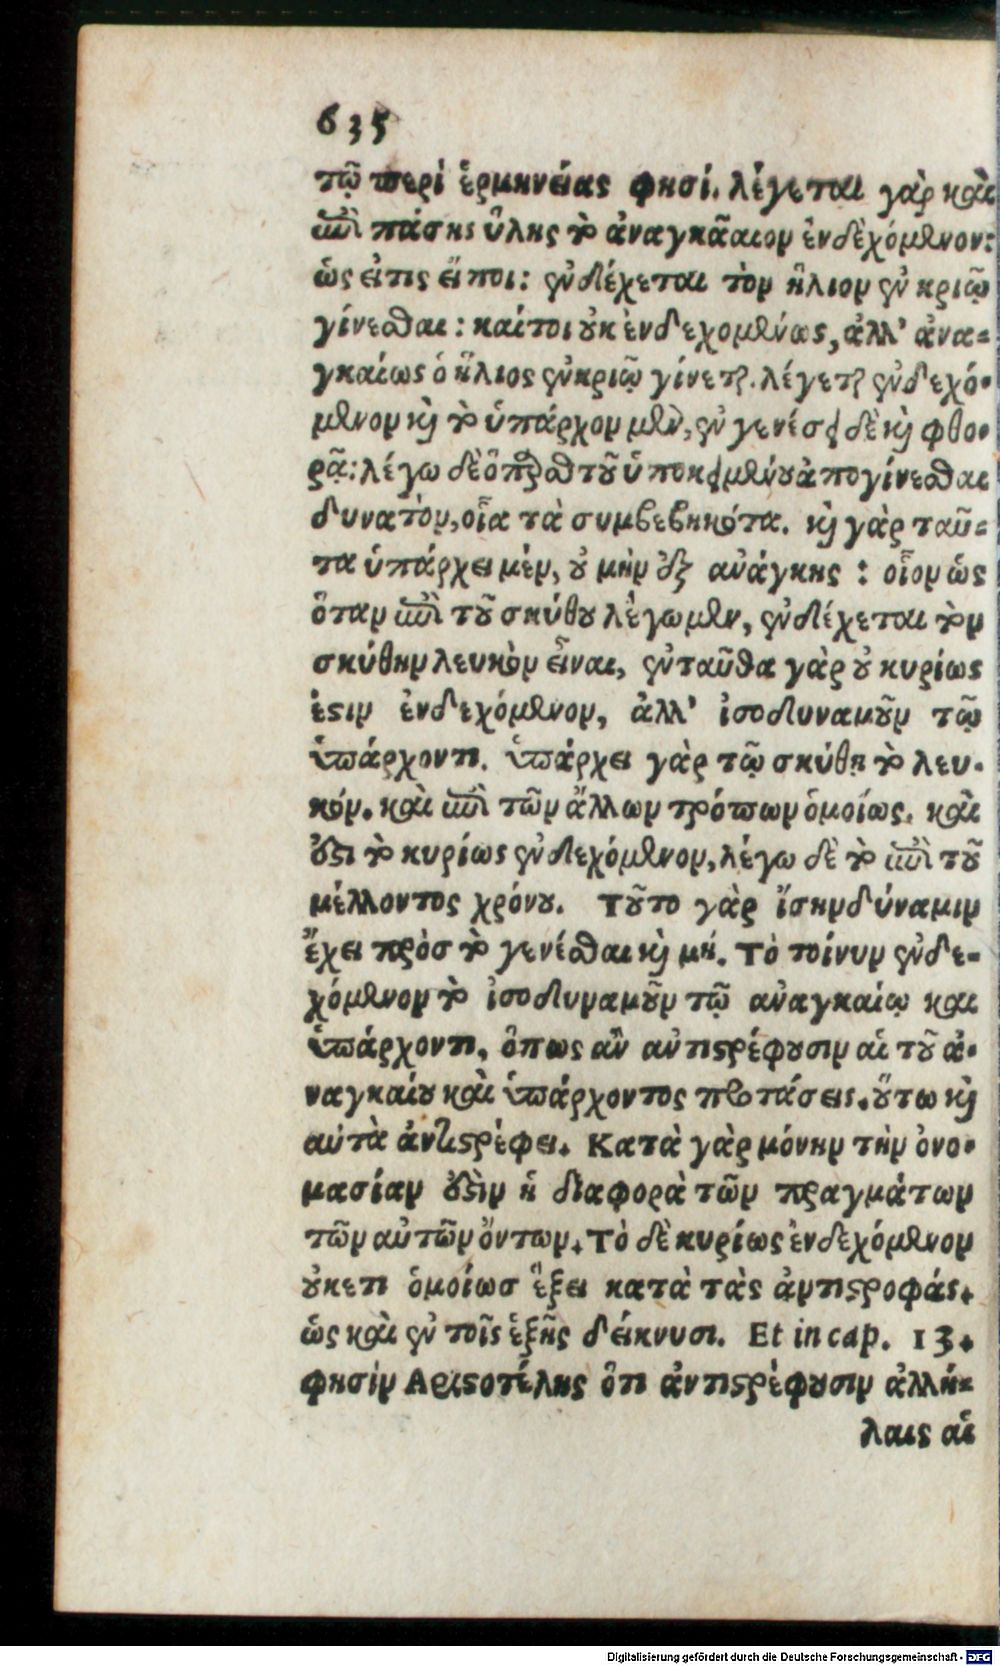 635
τῷ περὶ ἑρμηνείας φησί. λέγεται γὰρ καὶ
ἐπὶ πάσης ὕλης τὸ ἀναγκαῖον ἐνδεχόμενον:
ὡς εἴτις εἴποι: ἐνδέχεται τὸν ἥλιον ἐν κριῷ
γίνεσθαι: καίτοι οὐκ ἐνδεχομένως, ἀλλ' ἀνα-
γκαίως ὁ ἥλιος ἐν κριῷ γίνεται. λέγεται ἐνδεχό-
μενον καὶ τὸ ὑπάρχον μὲν, ἐν γενέσει δὲ καὶ φθο-
ρᾷ: λέγω δὲ ὅπερ τοῦ ὑποκειμένου ἀπογίνεσθαι
δυνατὸν, οἷα τὰ συμβεβηκότα. καὶ γὰρ ταῦ-
τα ὑπάρχει μὲν, οὐ μὴν ἐξ ἀνάγκης: οἷον ὡς
ὅταν ἐπὶ τοῦ σκύθου λέγωμεν, ἐνδέχεται τὸν
σκύθην λευκὸν εἶναι, ἐνταῦθα γὰρ οὐ κυρίως
ἐστιν ἐνδεχόμενον, ἀλλ' ἰσοδυναμοῦν τῷ
ὑπάρχοντι. ὑπάρχει γὰρ τῷ σκύθῃ τὸ λευ-
κόν. καὶ ἐπὶ τῶν ἄλλων τρόπων ὁμοίως. καὶ
ἔστι τὸ κυρίως ἐνδεχόμενον, λέγω δὲ τὸ ἐπὶ τοῦ
μέλλοντος χρόνου. Τοῦτο γὰρ ἴσην δύναμιν
ἔχει πρὸσ τὸ γενέσθαι καὶ μή. Τὸ τοίνυν ἐνδε-
χόμενον τὸ ἰσοδυναμοῦν τῷ ἀναγκαίῳ και
ὑπάρχοντι, ὅπως ἂν ἀντιστρέφουσιν αἱ τοῦ ἀ-
ναγκαίου καὶ ὑπάρχοντος προτάσεις. οὕτω καὶ
αὐτὰ ἀντιστρέφει. Κατὰ γὰρ μόνην τὴν ὀνο-
μασίαν ἐστὶν ἡ διαφορὰ τῶν πραγμάτων
τῶν αὐτῶν ὄντων. Τὸ δὲ κυρίως ἐνδεχόμενον
οὐκετι ὁμοίωσ ἕξει κατὰ τὰς ἀντιστροφάς.
ὡς καὶ ἐν τοῖς ἑξῆς δείκνυσι. Et in cap. 13.
φησὶν Αριστοτέλης ὅτι ἀντιστρέφουσιν ἀλλή-
λαις αἱ
Digitalisierung gefördert durch die Deutsche Forschungsgemeinschaft - DFG